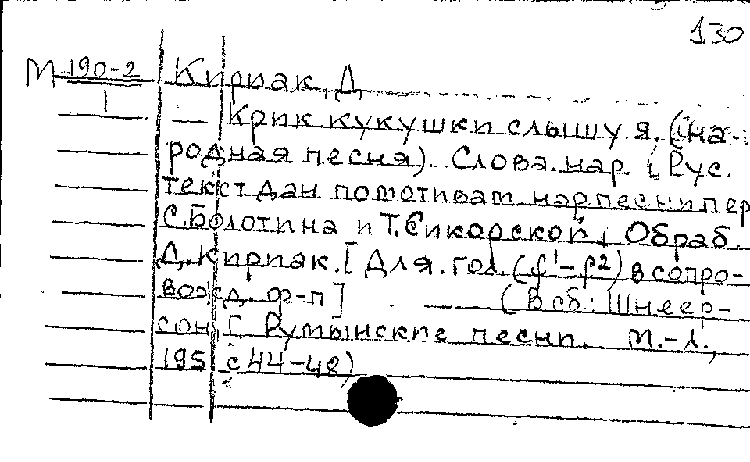 130
М 190-2 Кириак, Д.
1 — Крик кукушки слышу я. (На-
родная песня). Слова нар. Рус.
текст дан по мотивам нар песни пер
С. Болотина и Т. Сикорской. Обраб.
Д. Кириак. [Для гол. (f¹-f²) в сопро-
вожд. ф-п] — (В сб: Шнеер-
сон, Г. Румынские песни. М.-Л.,
195 с 44-48)